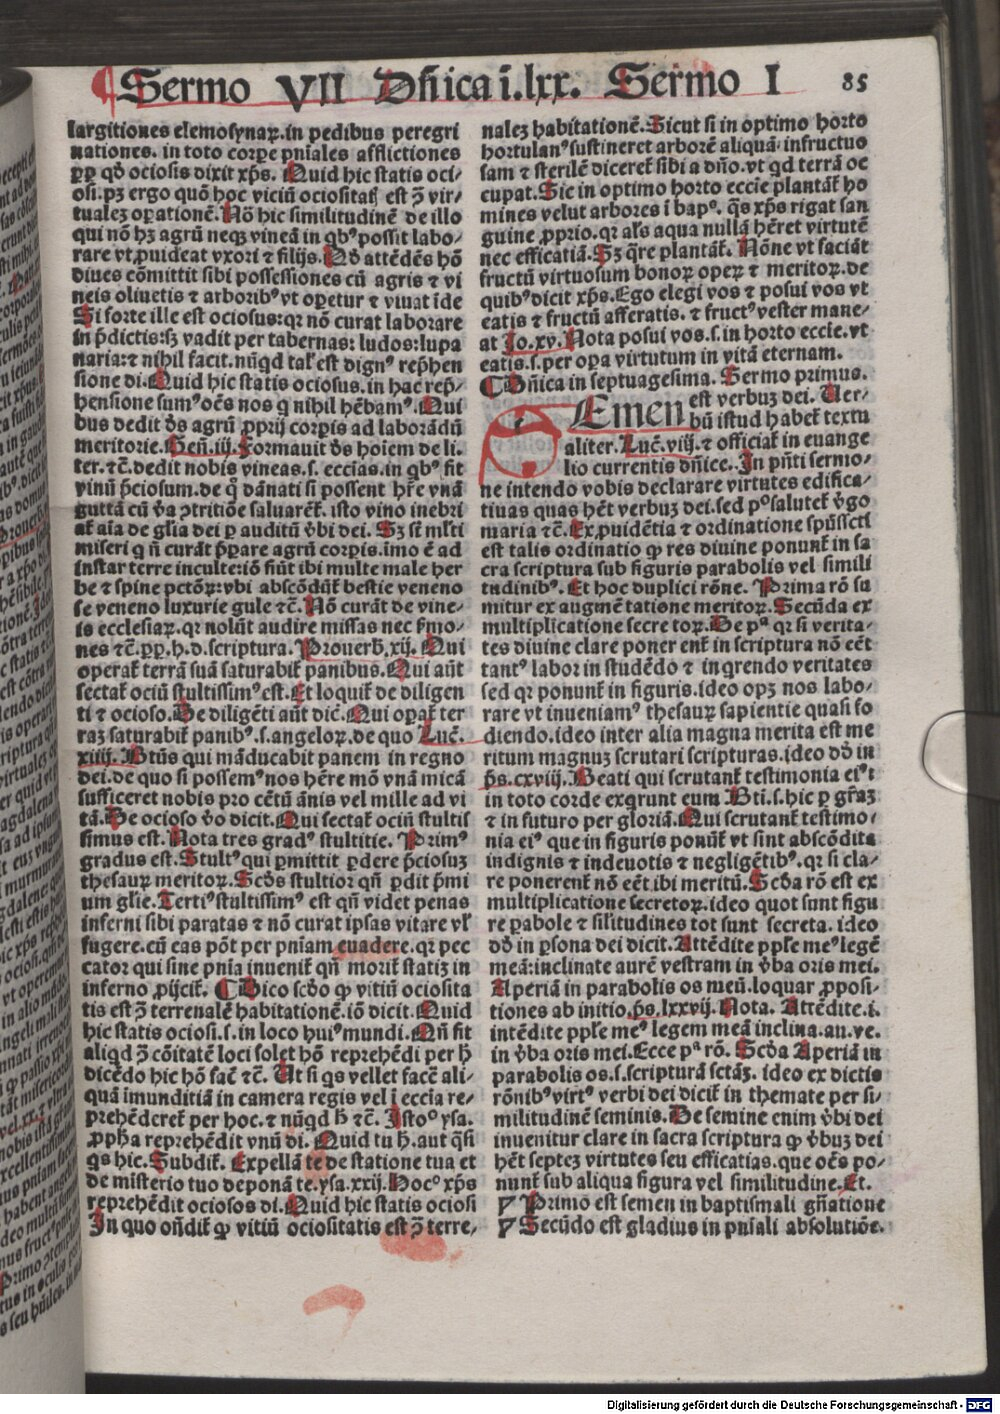 Sermo VII Dñica i.lxx. Sermo I 85
largitiones elemosynaꝝ. in pedibus peregri
nationes. in toto corꝑe pniales afflictiones
ꝓꝑ qđ ociosis dixit xp̄s. Quid hic statis oci-
osi. pꝫ ergo quō hoc viciū ociositatꝭ est ↄ̄ vir-
tualeꝫ oꝑationē. Nō hic similitudinē de illo
qui nō hꝫ agrū neqꝫ vineā in qbꝰ possit labo-
rare vt ꝓuideat vxori ⁊ filijs. Qđ attēdēs hō
diues cōmittit sibi possessiones cū agris ⁊ vi
neis oliuetis ⁊ arboribꝰ vt oꝑetur ⁊ viuat īde
Si forte ille est ociosus: qꝛ nō curat laborare
in p̄dictis: sꝫ vadit per tabernas: ludos: lupa
naria: ⁊ nihil facit. nūqd talꝭ est dignꝰ rep̄hen
sione di. Quid hic statis ociosus. in hac rep̄-
hensione sumꝰ oēs nos q nihil hēbamꝰ. Qui
bus dedit dꝰs agrū ꝓprij corpis ad laborādū
meritorie. Gen̄. iij. Formauit dꝰs hoīem de li
ter. ⁊c̄. dedit nobis vineas. s. eccīas. in qbꝰ fit
vinū p̄ciosum. de qͦ dānati si possent hr̄e vnā
guttā cū v̄a ↄtritiōe saluarēt̄. isto vino inebri
at̄ aīa de glīa dei ꝑ auditū v̄bi dei. Sꝫ sūt ml̄ti
miseri q ñ curāt p̄ꝑare agrū corꝑis. imo ē ad
instar terre inculte: iō fiūt ibi multe male her
be ⁊ spine pctōꝝ: vbi abscōdūt̄ bestie veneno
se veneno luxurie gule ⁊c̄. Nō curāt de vine-
is ecclesiaꝝ. qꝛ nolūt audire missas nec s̄mo-
nes ⁊c̄. ꝓꝑ. h. d. scriptura. Prouerb̄. xij. Qui
operat̄ terrā suā saturabit̄ panibus. Qui aūt
sectat̄ ociū stultissimꝰ est. Et loquit̄ de diligen
ti ⁊ ocioso. De diligēti aūt dic̄. Qui opat̄ ter
raꝫ saturabit̄ panibꝰ. s. angeloꝝ. de quo Luc̄.
xiiij. Btūs qui māducabit panem in regno
dei. de quo si possemꝰ nos hēre mō vnā micā
sufficeret nobis pro cētū ānis vel mille ad vi
tā. De ocioso v̄o dicit. Qui sectat̄ ociū stultis
simus est. Nota tres gradꝰ stultitie. Primꝰ
gradus est. Stultꝰ qui ꝑmittit ꝑdere p̄ciosuꝫ
thesauꝝ meritoꝝ. Scđs stultior qñ ꝑdit p̄mi
um glīe. Tertiꝰ stultissimꝰ est qñ videt penas
inferni sibi paratas ⁊ nō curat ipsas vitare vl̄
fugere. cū eas pōt per pniam euadere. qꝛ pec
cator qui sine pnia inuenit̄ qñ morit̄ statiꝫ in
inferno ꝓijcit̄. Dico scđo ꝙ vitiū ociosita
tis est ↄ̄ terrenalē habitationē. iō dicit. Quid
hic statis ociosi. s. in loco huiꝰ mundi. Qñ fit
aliqd ↄ̄ cōitatē loci solet hō reprehēdi per h̄
dicēdo hic hō fac̄ ⁊c̄. Ut si qs vellet facē ali-
quā imunditiā in camera regis vel ī eccīa re-
prehēderet̄ per hoc. ⁊ nūqd h̄ ⁊c̄. Istoᵒ ysa.
ꝓpħa reprehēdit vnū di. Quid tu h̄. aut q̄si
qs hic. Subdit̄. Expellā te de statione tua et
de misterio tuo deponā te. ysa. xxij. Hocᵒ xp̄s
reprehēdit ociosos di. Quid hic statis ociosi
In quo oñdit̄ ꝙ vitiū ociositatis est ↄ̄ terre-
naleꝫ habitationē. Sicut si in optimo horto
hortulanꝰ sustineret arborē aliquā infructuo
sam ⁊ sterilē diceret̄ sibi a dño. vt qd terrā oc
cupat. Sic in optimo horto eccīe plantāt̄ ho
mines velut arbores ī bapᵒ. q̄s xp̄s rigat san
guine ꝓprio. qꝛ al̄s aqua nullā hēret virtutē
nec efficatiā. Sꝫ q̄re plantāt̄. Nōne vt faciāt
fructū virtuosum bonoꝝ operꝝ ⁊ meritoꝝ. de
quibꝰ dicit xp̄s. Ego elegi vos ⁊ posui vos vt
eatis ⁊ fructū afferatis. ⁊ fructꝰ vester mane-
at Jo. xv. Nota posui vos. s. in horto eccīe. vt
eatis. s. per opa virtutum in vitā eternam.
Dñica in septuagesima. Sermo primus.
Semen est verbuꝫ dei. Uer-
bū istud habet̄ textu
aliter. Luc̄. viij. ⁊ officiat̄ in euange
lio currentis dñice. In pñti sermo-
ne intendo vobis declarare virtutes edifica-
tiuas quas hēt verbuꝫ dei. sed pᵒ salutet̄ v̄go
maria ⁊c̄. Ex ꝓuidētia ⁊ ordinatione spūssctī
est talis ordinatio ꝙ res diuine ponunt̄ in sa
cra scriptura sub figuris parabolis vel simili
tudinibꝰ. Et hoc duplici rōne. Prima rō su
mitur ex augmētatione meritoꝝ. Secūda ex
multiplicatione secretoꝝ. De pᵃ qꝛ si verita-
tes diuine clare ponerent̄ in scriptura nō eēt
tantꝰ labor in studēdo ⁊ ingrendo veritates
sed qꝛ ponunt̄ in figuris. ideo opꝫ nos labo-
rare vt inueniamꝰ thesauꝝ sapientie quasi fo
diendo. ideo inter alia magna merita est me
ritum magnuꝫ scrutari scripturas. ideo dđ in
p̄s. cxviij. Beati qui scrutant̄ testimonia eiꝰ ⁊
in toto corde exqrunt eum. Bti. s. hic ꝑ gr̄aꝫ
⁊ in futuro per gloriā. Qui scrutant̄ testimo-
nia eiꝰ que in figuris ponūt̄ vt sint abscōdita
indignis ⁊ indeuotis ⁊ negligētibꝰ. qꝛ si cla-
re ponerent̄ nō eēt ibi meritū. Scđa rō est ex
multiplicatione secretoꝝ. ideo quot sunt figu
re ꝑabole ⁊ sil̄itudines tot sunt secreta. ideo
dđ in ꝑsona dei dicit. Attēdite pple meꝰ legē
meā: inclinate aurē vestram in v̄ba oris mei.
Aperiā in parabolis os meū. loquar ꝓposi-
tiones ab initio. p̄s. lxxvij. Nota. Attēdite. i.
intēdite pple meꝰ legem meā inclina. au. ve.
in v̄ba oris mei. Ecce pᵃ rō. Scđa Aperiā in
parabolis os. s. scripturā sctāꝫ. ideo ex dictis
rōnibꝰ virtꝰ verbi dei dicit̄ in themate per si-
militudinē seminis. De semine enim v̄bi dei
inuenitur clare in sacra scriptura ꝙ v̄buꝫ dei
hēt septeꝫ virtutes seu efficatias. que oēs po-
nunt̄ sub aliqua figura vel similitudine. Et.
Primo est semen in baptismali gñatione
Secūdo est gladius in pniali absolutiōe.
Digitalisierung gefördert durch die Deutsche Forschungsgemeinschaft - DFG